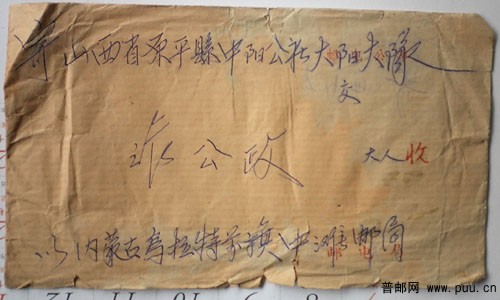 寄山西省原平縣中阳公社大阳大隊
交
公政
大人收
内蒙古烏拉特前旗 中滩邮局
普邮网
www.puu.cn